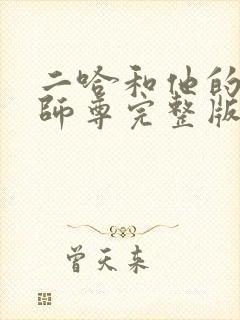 二哈和他的
师尊完整版
曾天来